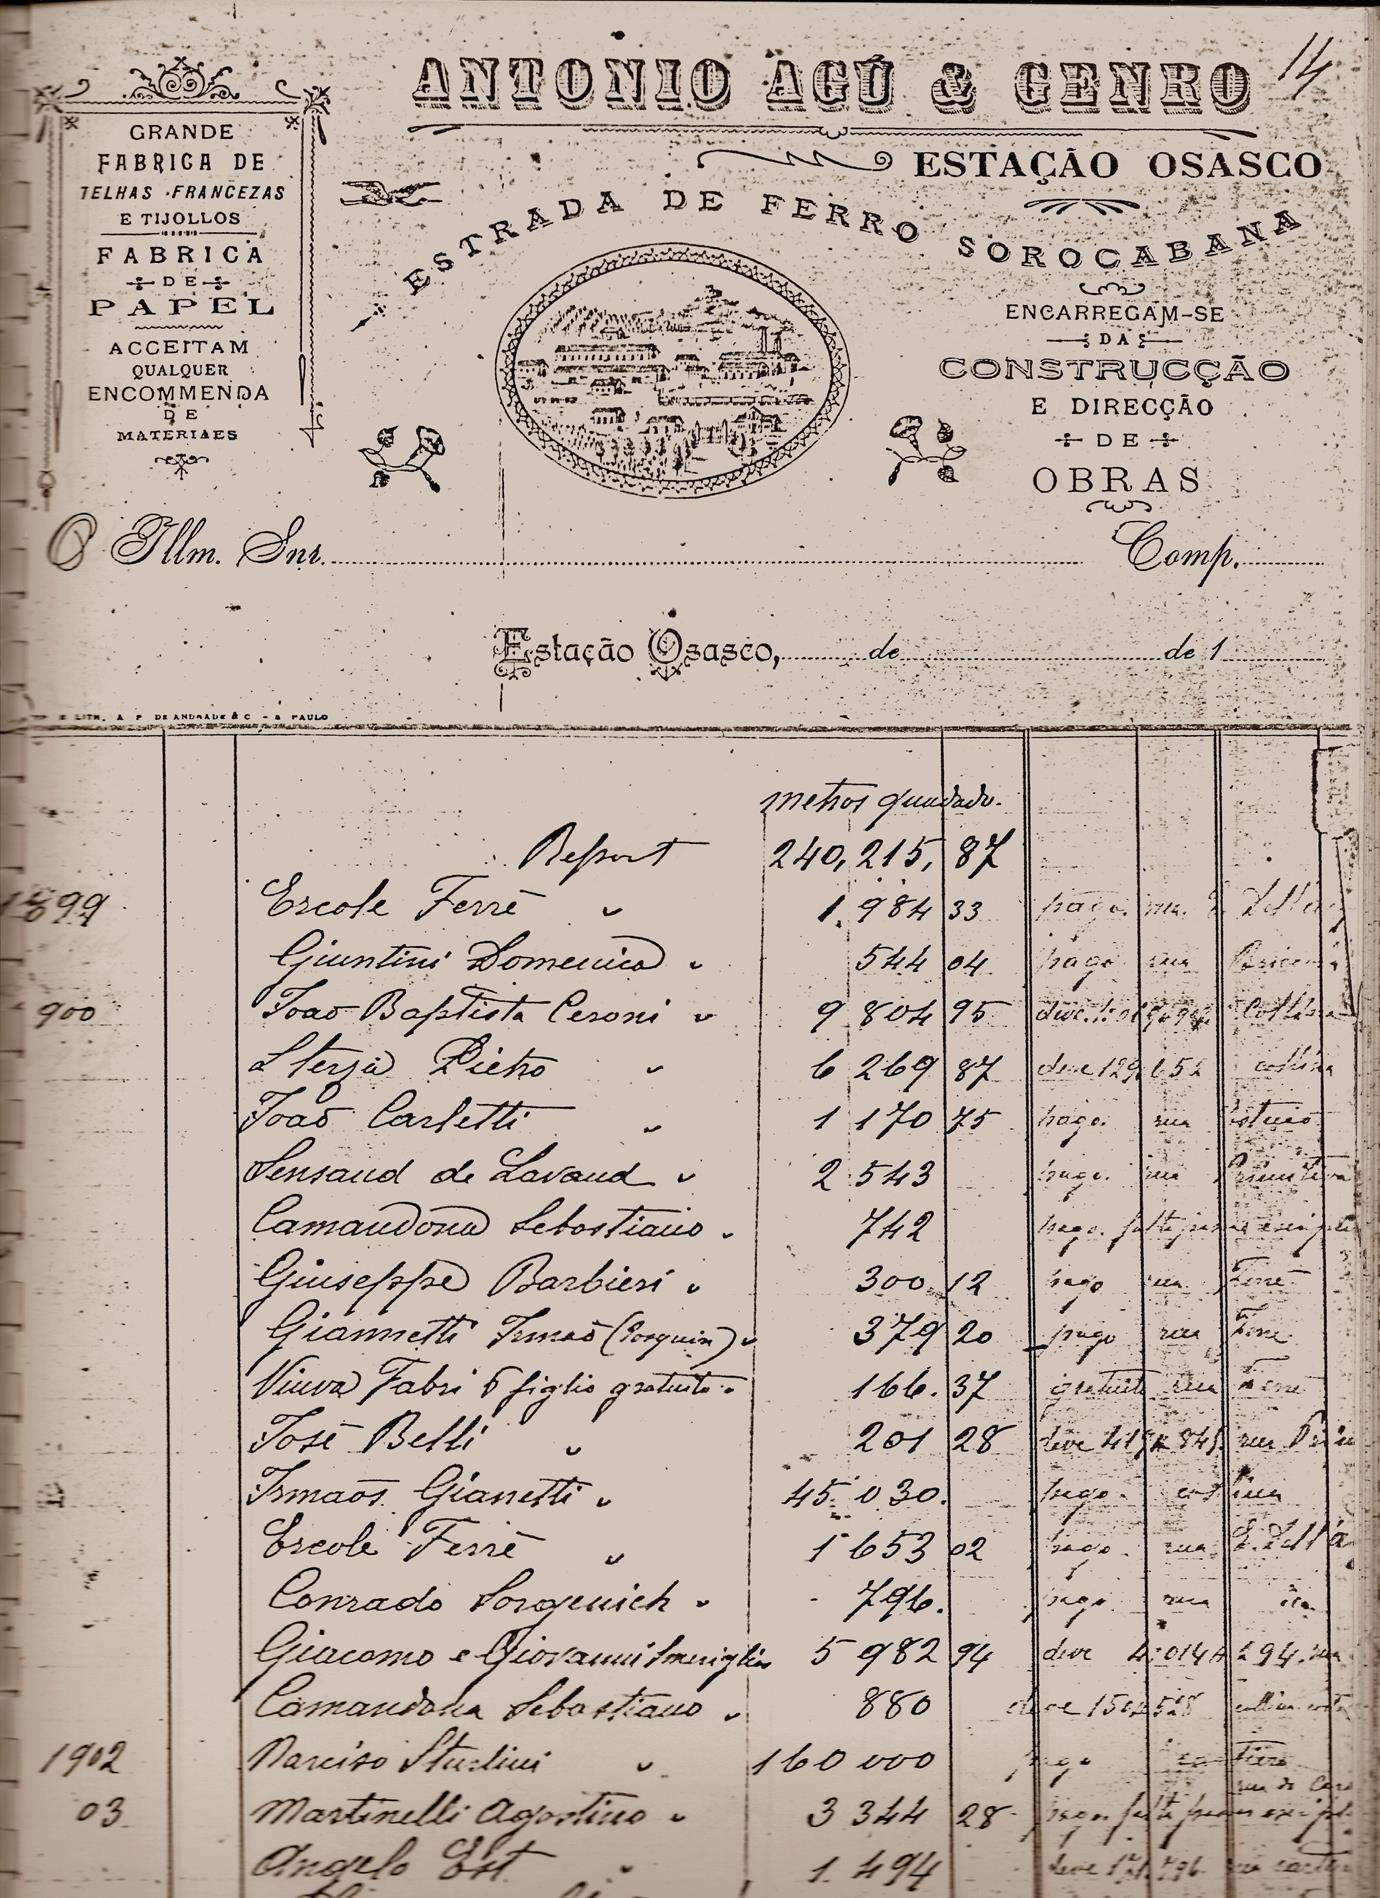 14
ANTONIO AGÚ & GENRO
GRANDE
FABRICA DE
TELHAS FRANCEZAS
E TIJOLLOS
FABRICA
DE
PAPEL
ACCEITAM
QUALQUER
ENCOMMENDA
DE
MATERIAES
ESTAÇÃO OSASCO
ESTRADA DE FERRO SOROCABANA
ENCARREGAM-SE
DA
CONSTRUCÇÃO
E DIRECÇÃO
DE
OBRAS
O Illm. Snr. Comp.
Estação Osasco, de de 1
LITH. A. P. DE ANDRADE & C - S PAULO
metros quadado.
Report 240,215,87
1899 Ercole Ferrè " 1.984 33 pago. rua
Giuntini Domenico " 544 04 pago rua
900 Joaõ Baptista Ceroni " 9 804 95 deve
Sterza Pietro " 6 269 87 deve 129,652 collina
Joaõ Carletti " 1 170 75 pago. rua
Sensaud de Lavaud " 2 543 pago. rua Primitiva
Camandona Sebastiano " 742 pago.
Giuseppe Barbieri " 300 12 pago rua Ferrè
Giannetti Irmaõ " 379 20 pago rua Ferrè
Viuva Fabri figlio gratuito " 166.37 gratuito rua Ferrè
José Belli " 201 28 deve rua
Irmaõs Gianetti " 45 030. pago. collina
Ercole Ferrè " 1 653 02 pago. rua
Conrado Sorgenich " 796. pago. rua
Giacomo e Giovanni Smeriglio 5 982 94 deve 4:014 294. rua
Camandona Sebastiano " 880 deve
1902 Narciso Sturlini " 160 000 pago
03 Martinelli Agostino " 3 344 28 pago.
Angelo Est " 1.494 deve rua